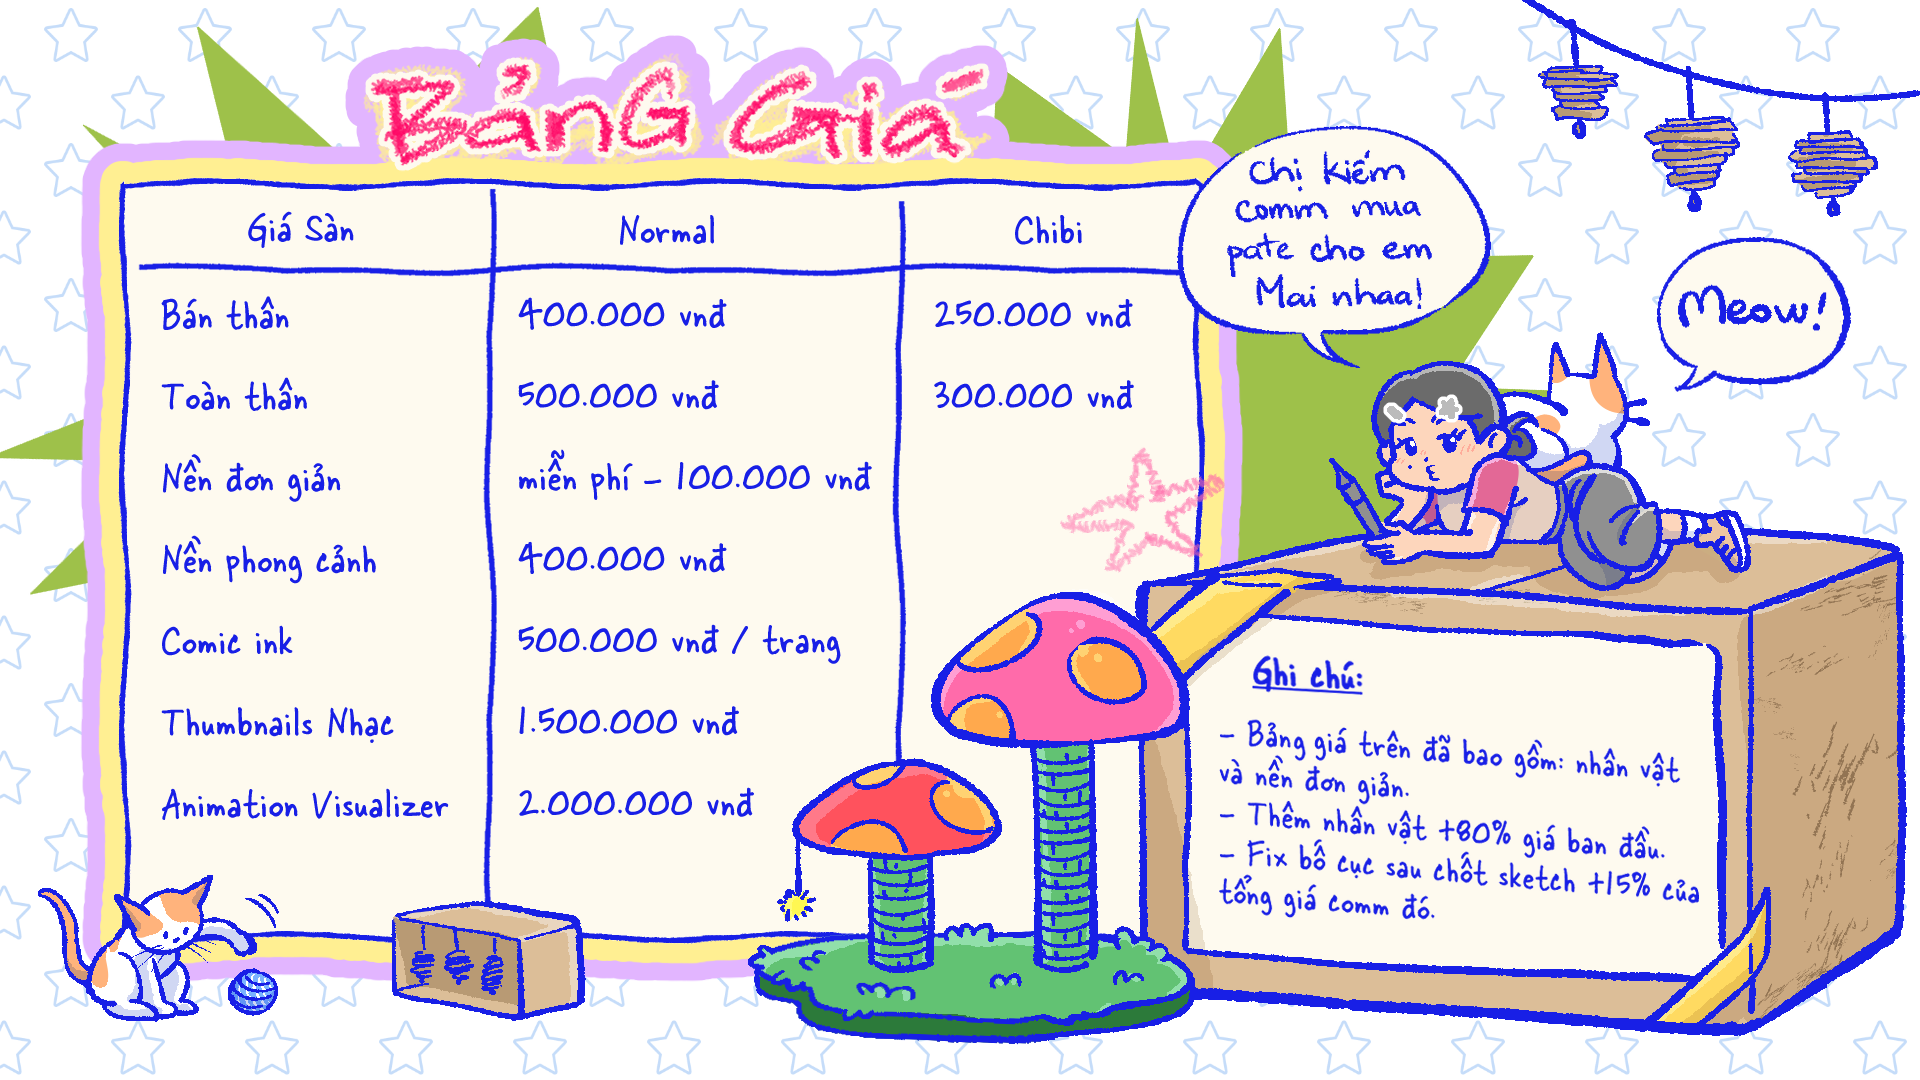 Bảng Giá
Giá Sàn Normal Chibi
Bán thân 400.000 vnđ 250.000 vnđ
Toàn thân 500.000 vnđ 300.000 vnđ
Nền đơn giản miễn phí – 100.000 vnđ
Nền phong cảnh 400.000 vnđ
Comic ink 500.000 vnđ / trang
Thumbnails Nhạc 1.500.000 vnđ
Animation Visualizer 2.000.000 vnđ
Chị kiếm
comm mua
pate cho em
Mai nhaa!
Meow!
Ghi chú:
– Bảng giá trên đã bao gồm: nhân vật
và nền đơn giản.
– Thêm nhân vật +80% giá ban đầu.
– Fix bố cục sau chốt sketch +15% của
tổng giá comm đó.